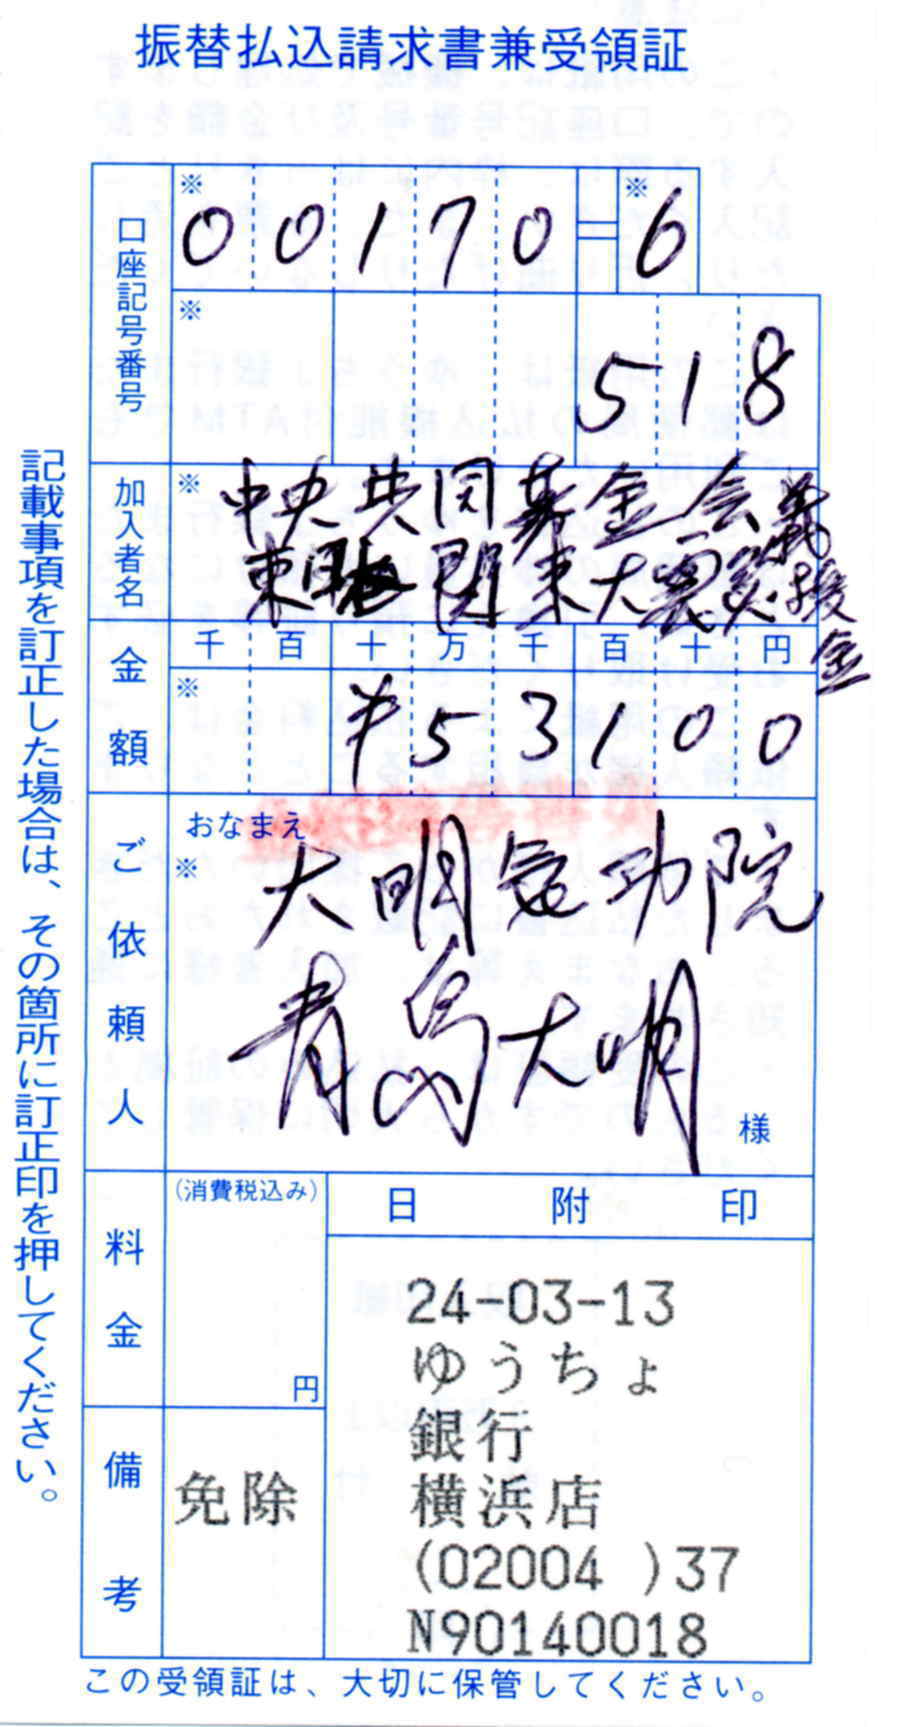 振替払込請求書兼受領証
口座記号番号
※
00170-6
※
※
518
加入者名
※
中央共同募金会
東関東大震災義援金
金額
千 百 十 万 千 百 十 円
※
¥53100
ご依頼人
おなまえ
※
大明気功院
青島大明
様
料金
(消費税込み)
円
日附印
24-03-13
ゆうちょ
銀行
横浜店
(02004 )37
N90140018
備考
免除
記載事項を訂正した場合は、その箇所に訂正印を押してください。
この受領証は、大切に保管してください。